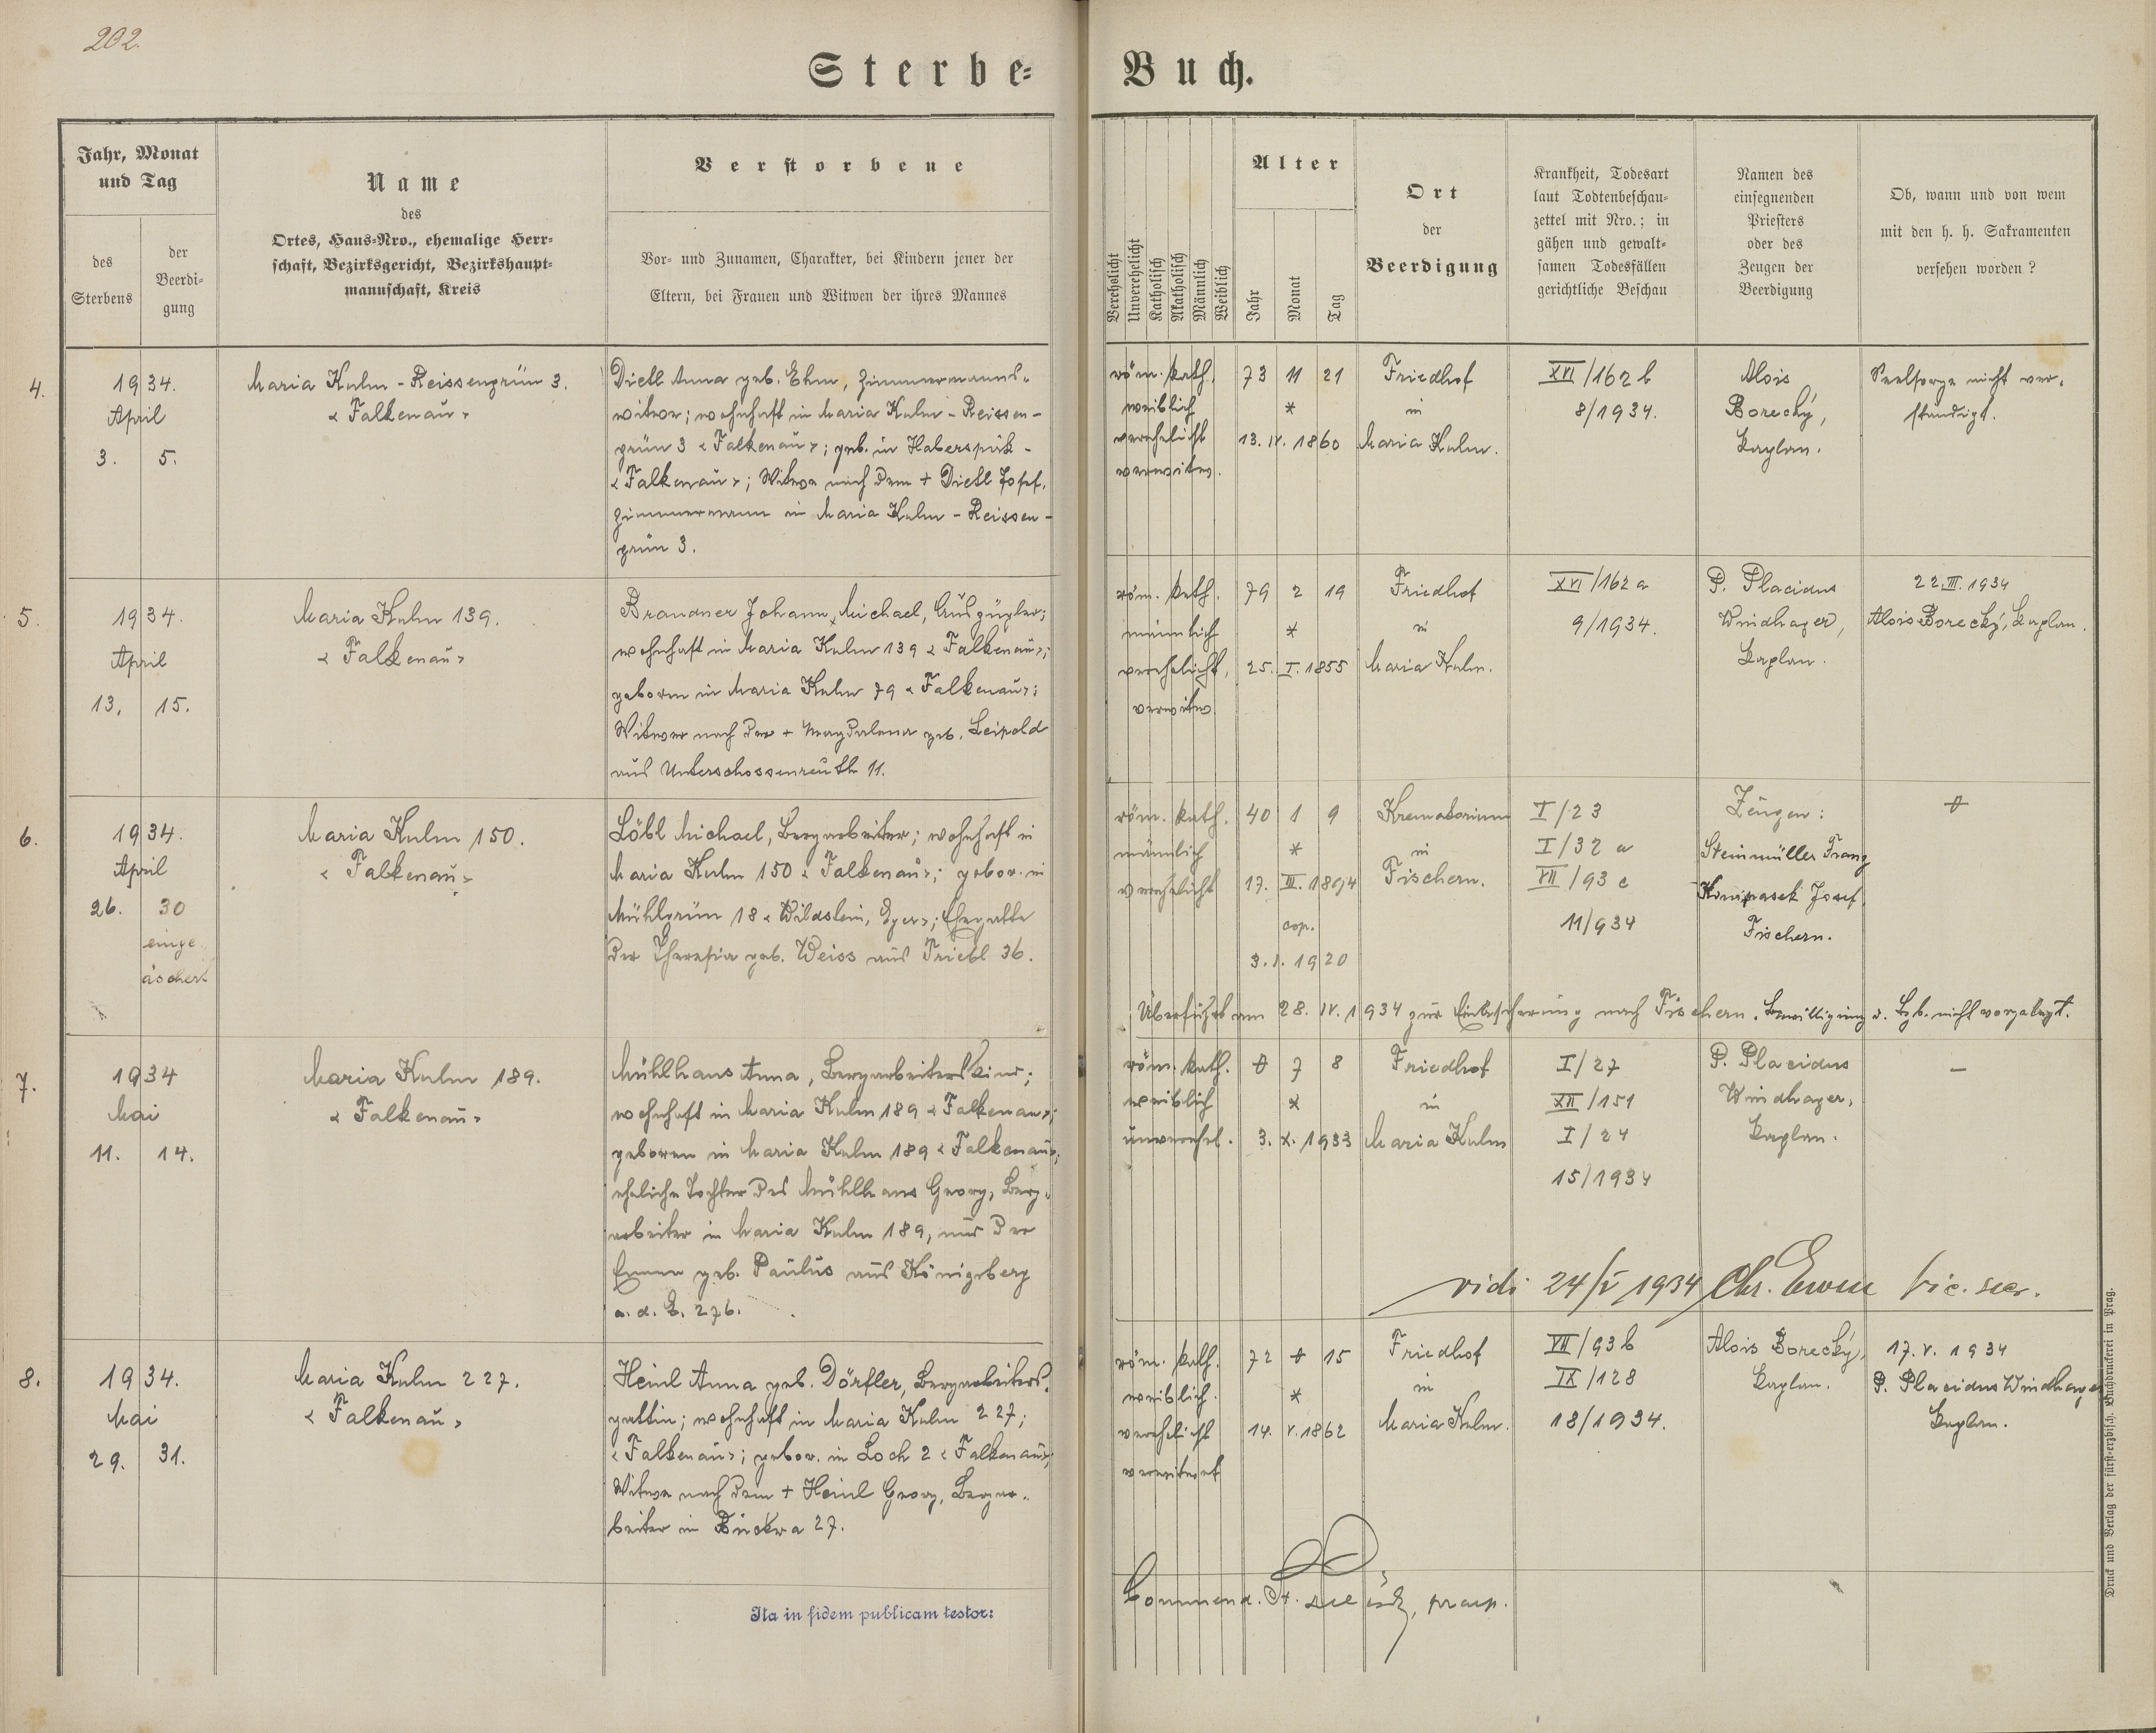 202.
Sterbe-
Buch.
Jahr, Monat
und Tag
des
Sterbens
der
Beerdi-
gung
Name
des
Ortes, Haus-Nro., ehemalige Herr-
schaft, Bezirksgericht, Bezirkshaupt-
mannschaft, Kreis
Verstorbene
Vor- und Zunamen, Charakter, bei Kindern jener der
Eltern, bei Frauen und Witwen der ihres Mannes
Verehelicht
Unverehelicht
Katholisch
Akatholisch
Männlich
Weiblich
Alter
Jahr
Monat
Tag
Ort
der
Beerdigung
Krankheit, Todesart
laut Todtenbeschau-
zettel mit Nro.; in
gähen und gewalt-
samen Todesfällen
gerichtliche Beschau
Namen des
einsegnenden
Priesters
oder des
Zeugen der
Beerdigung
Ob, wann und von wem
mit den h. h. Sakramenten
versehen worden?
4.
1934.
April
3. 5.
Maria Kulm - Reissengrün 3.
« Falkenau »
Dietl Anna geb. Ehm, Zimmermanns-
witwe; wohnhaft in Maria Kulm - Reissen-
grün 3 « Falkenau »; geb. in Haberspirk -
« Falkenau »; Witwe nach dem + Dietl Josef,
Zimmermann in Maria Kulm - Reissen-
grün 3.
röm. kath.
weiblich
verehelicht
verwitw.
73 11 21
*
13. IV. 1860
Friedhof
in
Maria Kulm.
XVI/162 b
8/1934.
Alois
Borecký,
Kaplan.
Seelsorge nicht ver-
ständigt.
5.
1934.
April
13. 15.
Maria Kulm 139.
« Falkenau »
Brandner Johann, Michael, Auszügler;
wohnhaft in Maria Kulm 139 « Falkenau »;
geboren in Maria Kulm 79 « Falkenau »;
Witwer nach der + Magdalena geb. Leipold
aus Unterschossenreuth 11.
röm. kath.
männlich
verehelicht,
verwitw.
79 2 19
*
25. I. 1855
Friedhof
in
Maria Kulm.
XVI/162 a
9/1934.
P. Placidus
Windhager,
Kaplan.
22. III. 1934
Alois Borecký, Kaplan.
6.
1934.
April
26. 30
einge
äschert
Maria Kulm 150.
« Falkenau »
Löbl Michael, Bergarbeiter; wohnhaft in
Maria Kulm 150 « Falkenau »; gebor. in
Mühlgrün 18 « Wildstein, Eger »; Ehegatte
der Theresia geb. Weiss aus Triebl 36.
röm. kath.
männlich
verehelicht
40 1 9
*
17. III. 1894
cop.
3. I. 1920
Krematorium
in
Fischern.
I/23
I/32 a
VII/93 c
11/934
Zeugen:
Steinmüller Franz
Josef
Fischern.
Überführt am 28. IV. 1934 zur Einäscherung nach Fischern. Bewilligung d. Bzb. nicht vorgelegt.
7.
1934
Mai
11. 14.
Maria Kulm 189.
« Falkenau »
Mühlhans Anna, Bergarbeiterskind;
wohnhaft in Maria Kulm 189 « Falkenau »;
geboren in Maria Kulm 189 « Falkenau »;
eheliche Tochter des Mühlhans Georg, Berg-
arbeiter in Maria Kulm 189, und der
Emma geb. Paulus aus Königsberg
a. d. E. 276.
röm. kath.
weiblich
unverehel.
0 7 8
*
3. X. 1933
Friedhof
in
Maria Kulm
I/27
XII/151
I/24
15/1934
P. Placidus
Windhager,
Kaplan.
—
vidi 24/V 1934 Chr. vic. secr.
8.
1934.
Mai
29. 31.
Maria Kulm 227.
« Falkenau »
Heinl Anna geb. Dörfler, Bergarbeiters-
gattin; wohnhaft in Maria Kulm 227;
« Falkenau »; gebor. in Loch 2 « Falkenau »;
Witwe nach dem + Heinl Georg, Bergar-
beiter in Zuckwa 27.
röm. kath.
weiblich.
verehelicht
verwitwet
72 0 15
*
14. V. 1862
Friedhof
in
Maria Kulm.
VII/93 b
IX/128
18/1934.
Alois Borecký,
Kaplan.
17. V. 1934
P. Placidus Windhager
Kaplan.
Ita in fidem publicam testor:
Commend.
Druck und Verlag der fürst-erzbisch. Buchdruckerei in Prag.